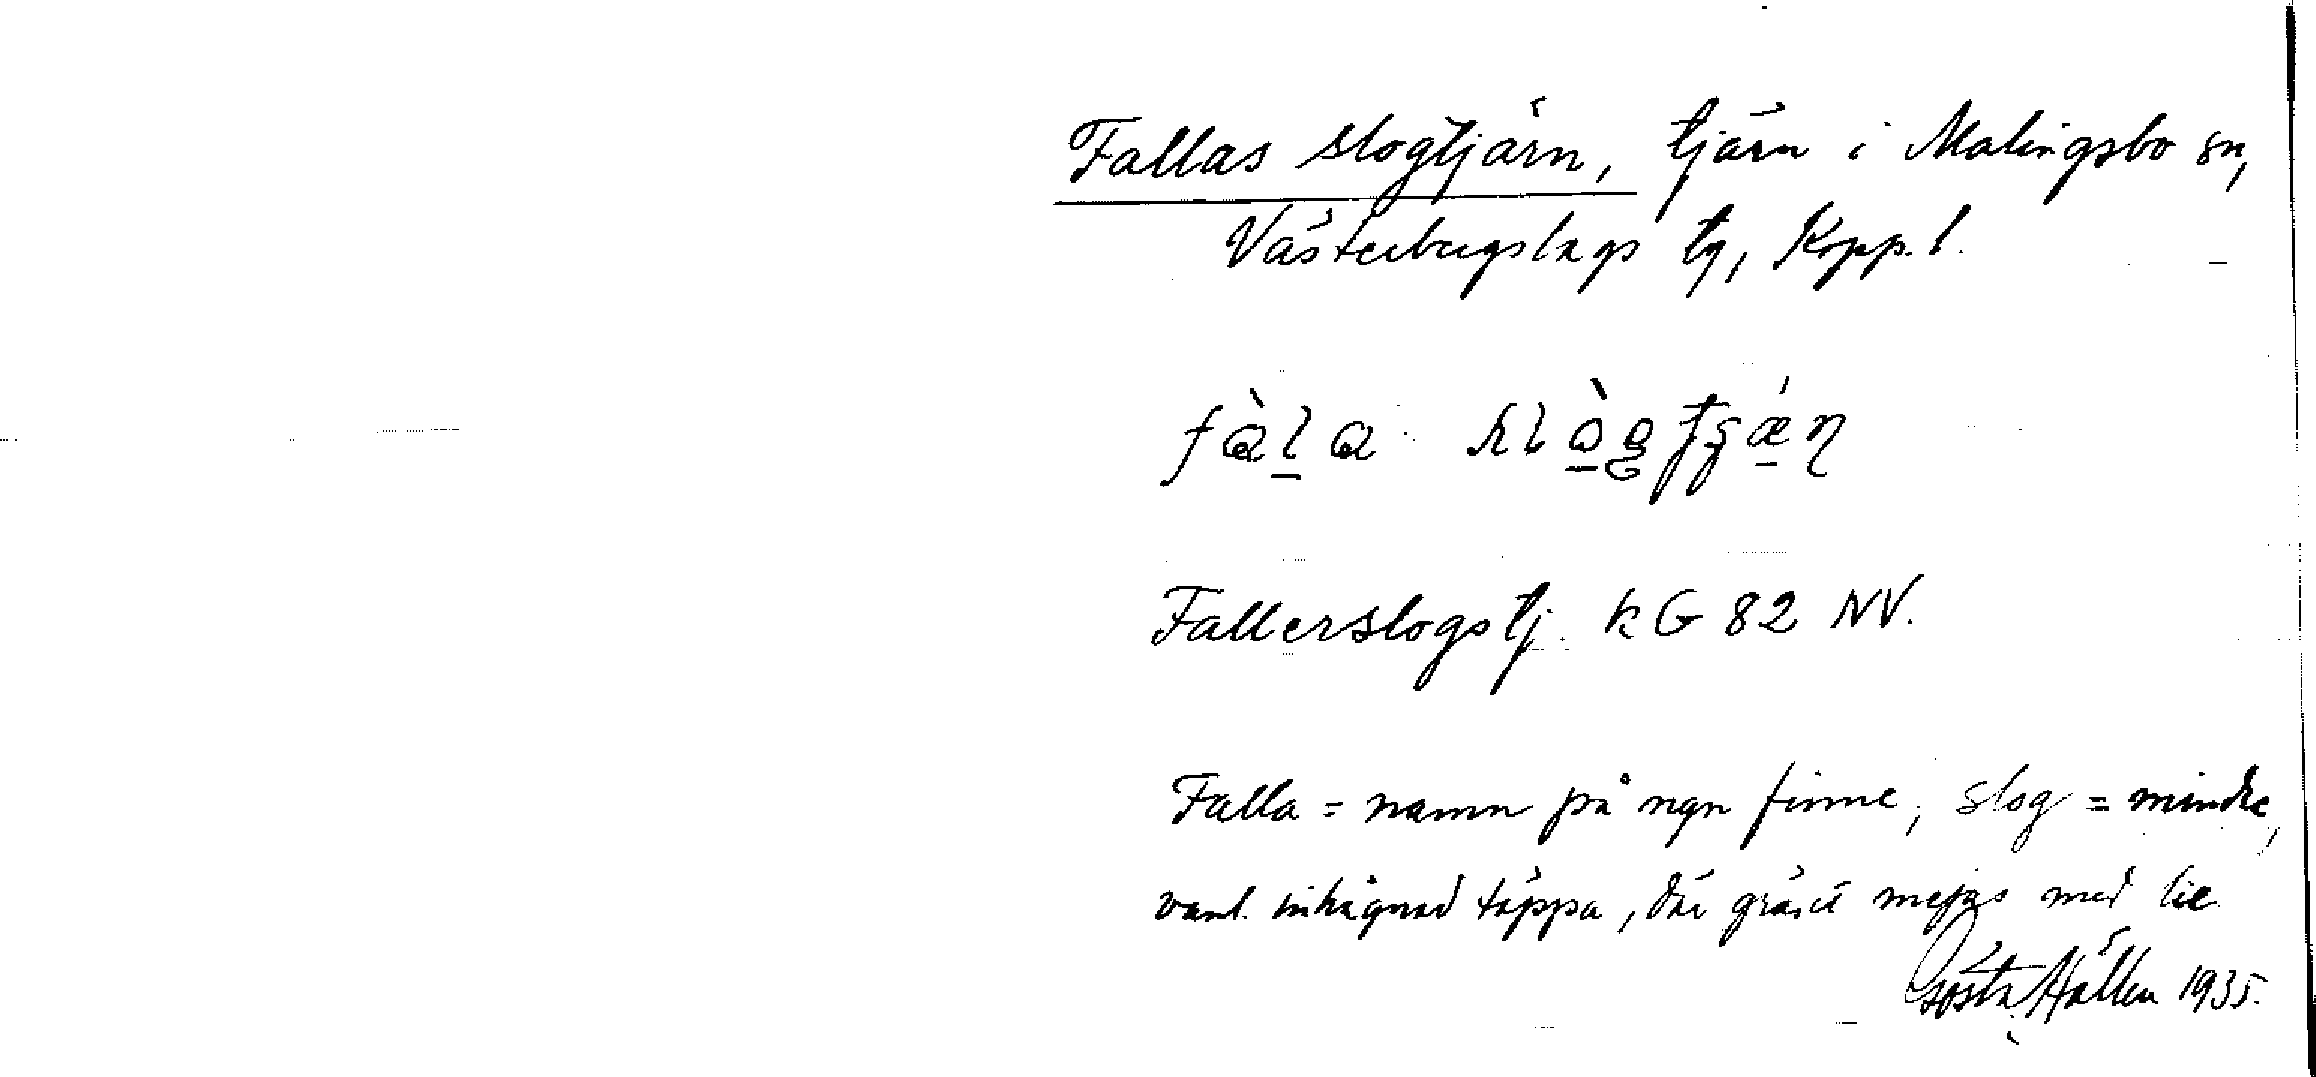 Fallas slogtjärn, tjärn i Malingsbo sn,
Västerbergslags tg, Kopp. l.
Fallerslogstj. kG 82 NV.
Falla = namn på ngn finne, slog = mindre,
vanl. inhägnad täppa, där gräset mejas med lie
Gösta Hållen 1935.